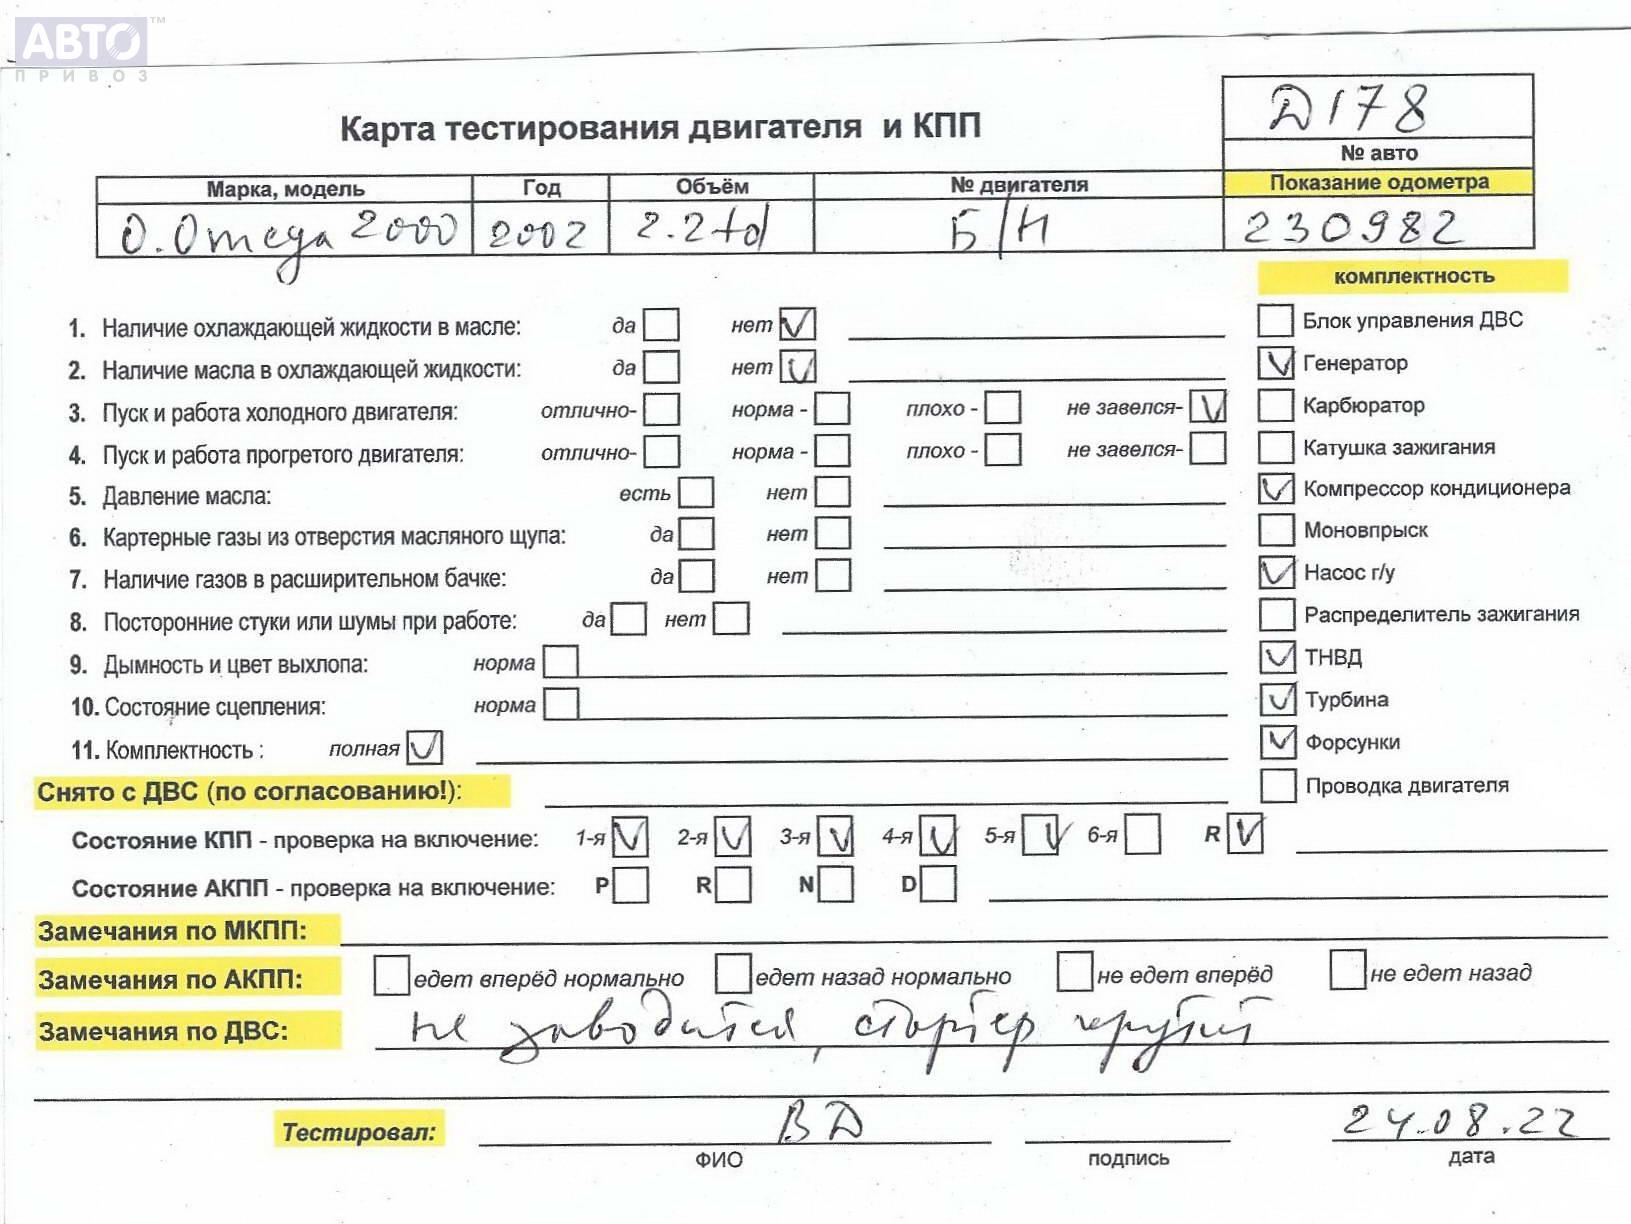 АВТО™
ПРИВОЗ
Д178
Карта тестирования двигателя и КПП
№ авто
Марка, модель Год Объём № двигателя Показание одометра
О. Omega 2000 2002 2.2td Б/Н 230982
комплектность
1. Наличие охлаждающей жидкости в масле: да нет
Блок управления ДВС
2. Наличие масла в охлаждающей жидкости: да нет
Генератор
3. Пуск и работа холодного двигателя: отлично- норма - плохо - не завелся-
Карбюратор
4. Пуск и работа прогретого двигателя: отлично- норма - плохо - не завелся-
Катушка зажигания
5. Давление масла: есть нет
Компрессор кондиционера
6. Картерные газы из отверстия масляного щупа: да нет
Моновпрыск
7. Наличие газов в расширительном бачке: да нет
Насос г/у
8. Посторонние стуки или шумы при работе: да нет
Распределитель зажигания
9. Дымность и цвет выхлопа: норма
ТНВД
10. Состояние сцепления: норма
Турбина
11. Комплектность : полная
Форсунки
Снято с ДВС (по согласованию!):
Проводка двигателя
Состояние КПП - проверка на включение: 1-я 2-я 3-я 4-я 5-я 6-я R
Состояние АКПП - проверка на включение: P R N D
Замечания по МКПП:
Замечания по АКПП: едет вперёд нормально едет назад нормально не едет вперёд не едет назад
Замечания по ДВС: не заводится, стартер крутит
Тестировал: ВД 24.08.22
ФИО подпись дата